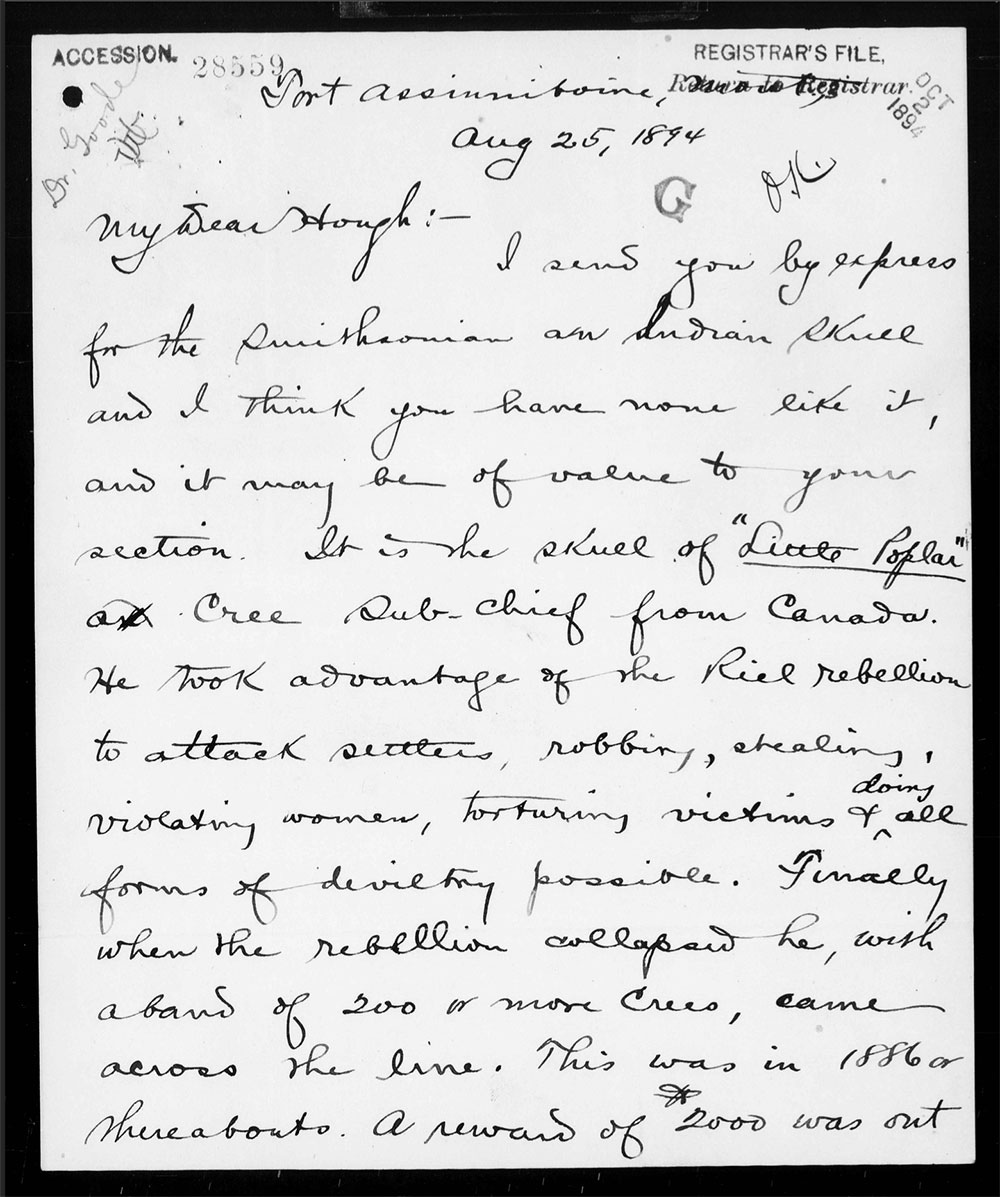 ACCESSION.
28559
REGISTRAR'S FILE,
Return to Registrar.
OCT 2 1894
Dr. Goode
Fort Assinniboine,
Aug 25, 1894
G
O.K.
My Dear Hough:—
I send you by express
for the Smithsonian an Indian skull
and I think you have none like it,
and it may be of value to your
section. It is the skull of "Little Poplar"
a Cree sub-chief from Canada.
He took advantage of the Riel rebellion
to attack settlers, robbing, stealing,
violating women, torturing victims & doing all
forms of deviltry possible. Finally
when the rebellion collapsed he, with
a band of 200 or more Crees, came
across the line. This was in 1886 or
thereabouts. A reward of $2000 was out